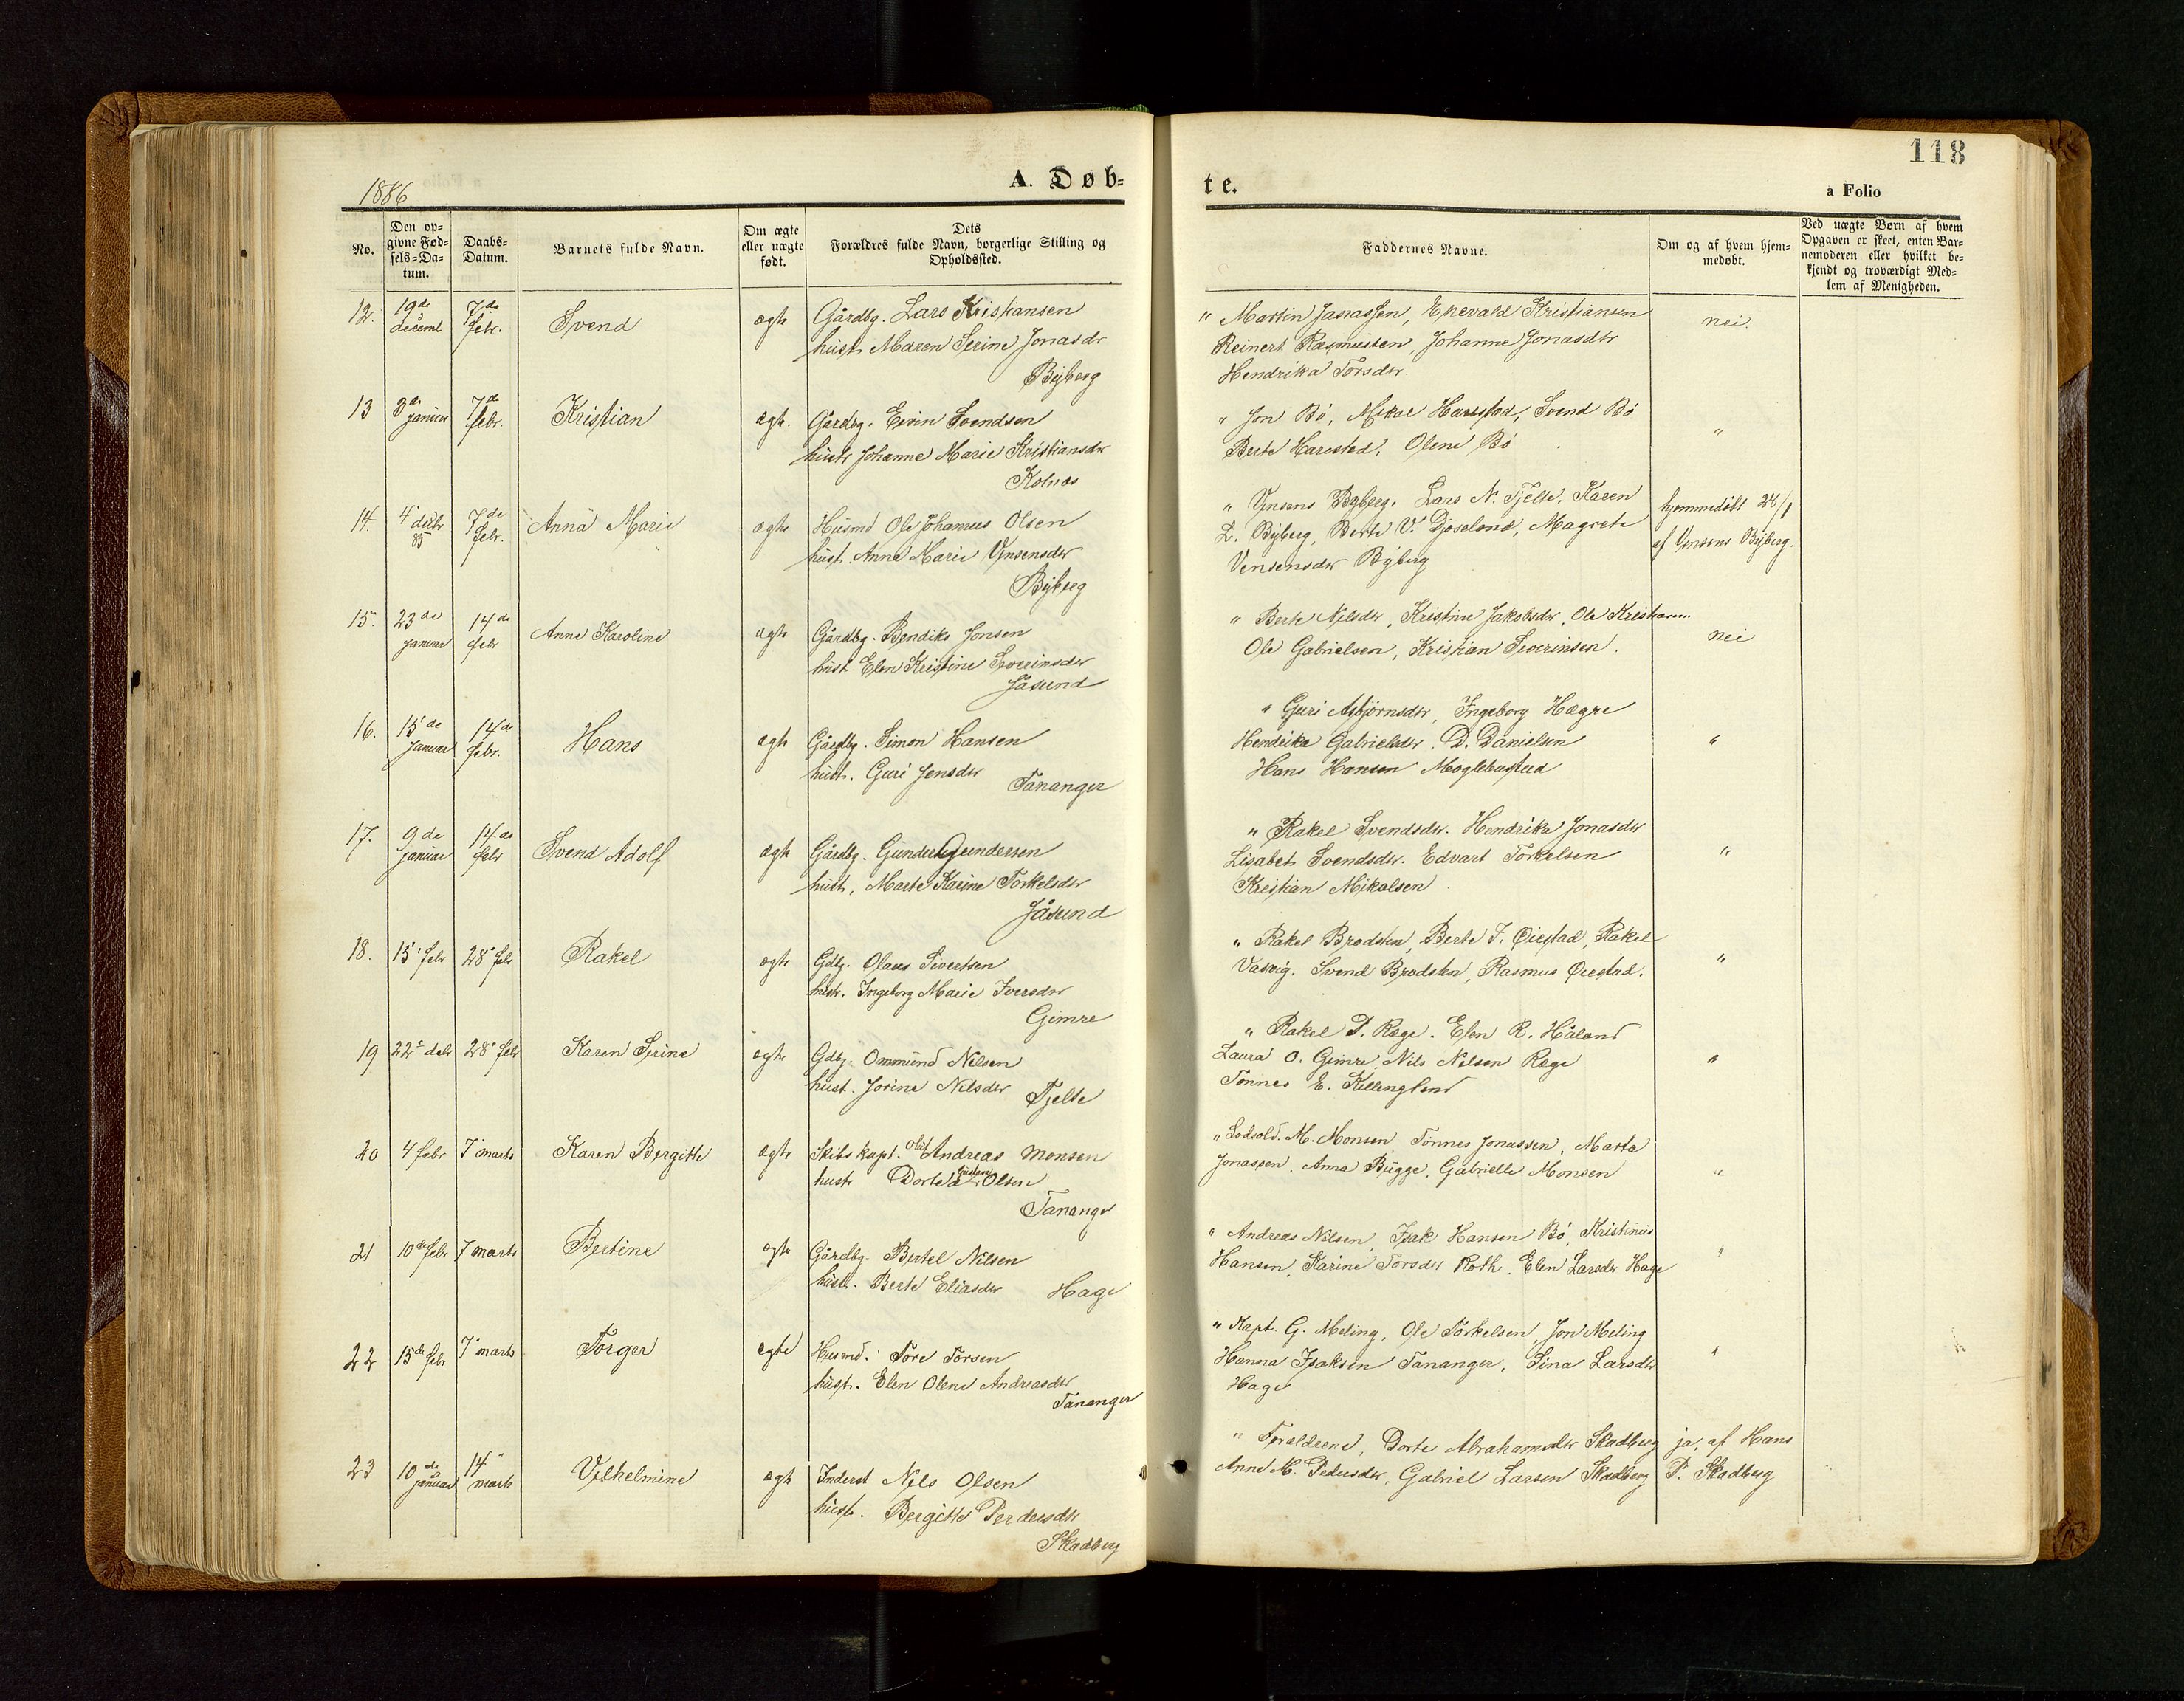 118
1886
A. Døb=
te.
a Folio
No.
Den op=
givne Fød=
sels=Da=
tum.
Daabs=
Datum.
Barnets fulde Navn.
Om ægte
eller uægte
født.
Dets
Forældres fulde Navn, borgerlige Stilling og
Opholdssted.
Faddernes Navne.
Om og af hvem hjem=
medøbt.
Ved uægte Børn af hvem
Opgaven er skeet, enten Bar=
nemoderen eller hvilket be=
kjendt og troværdigt Med=
lem af Menigheden.
12. 19de decemb 7de febr. Svend ægte Gårdbg. Lars Kristiansen
hustr. Maren Serine Jonasdr
Byberg
" Martin Janassen, Enevald Kristiansen
Reinert Rasmussen, Johanne Jonasdtr
Hendrika Torsdtr.
nei.
13 3de januar 7de febr. Kristian ægte. Gårdbg. Eivin Svendsen
hustr Johanne Marie Kristiansdtr
Kolnæs
" Jon Bö, Mikal Harestad, Svend Bö
Berte Harestad, Olene Bö
"
14. 4de decbr 85 7de febr. Anna Marie ægte Husmd Ole Johannes Olsen
hustr. Anne Marie Vensensdtr
Byberg
" Vensens Byberg. Lars N. Tjelte, Karen
L. Byberg, Berte V. Djoseland, Magrete
Vensensdtr Byberg
hjemmedöbt 28/1
af Vensens Byberg.
15. 23de januar 14de febr Anne Karoline ægte Gårdbg. Bendiks Jonsen
hust. Elen Kristine Severinsdtr
Jåsund
" Berte Nilsdtr, Kristine Jakobsdtr, Ole Kristiansen
Ole Gabrielsen, Kristian Severinsen.
nei
16. 15de januar 14de febr. Hans ægte Gårdbg. Simon Hansen
hust. Guri Jensdtr
Tananger
" Guri Asbjørnsdtr, Ingeborg Hægre
Hendrika Gabrielsdtr. D. Danielsen
Hans Hansen Møglebustad
"
17. 9de januar 14de febr Svend Adolf ægte Gårdbg. Gunder Gundersen
hustr, Marte Karine Torkelsdtr
Jåsund
" Rakel Svendsdtr. Hendrika Jonasdtr
Lisabet Svendsdtr. Edvart Torkelsen
Kristian Mikalsen
"
18. 15' febr 28' febr Rakel ægte Gdbg. Olaus Sivertsen
hustr. Ingeborg Marie Iversdtr
Gimre
" Rakel Brodsten, Berte J. Øiestad, Rakel
Vasvig. Svend Brodsten, Rasmus Øiestad.
"
19 22' debr 28' febr Karen Serine ægte Gdbg. Ommund Nilsen
hust. Jorine Nilsdtr
Tjelte
" Rakel T. Rege. Elen R. Håland
Laura O. Gimre, Nils Nilsen Rege
Tonnes E. Kellingland
"
20 4 febr 7' marts Karen Bergitte ægte Skibskapt. Olaf Andreas Monsen
hustr Dortea Gustava Olsen
Tananger
" Lodsold. M. Monsen Tönnes Jonassen, Marta
Jonassen. Anna Bugge, Gabrielle Monsen
"
21 10de febr 7 marts Bertine ægte Gårdbg. Bertel Nilsen
hustr. Berte Eliasdtr
Hage
" Andreas Nilsen, Isak Hansen Bö, Kristinius
Hansen, Karine Torsdtr Roth. Elen Larsdtr Hage
"
22 15de febr 7' marts Torger ægte Husmd. Tore Torsen
hustr. Elen Olene Andreasdtr
Tananger
" Kapt. G. Meling, Ole Torkelsen, Jon Meling
Hanna Isaksen Tananger, Sina Larsdtr
Hage
"
23 10de januar 14' marts Vilhelmine ægte Inderst Nils Olsen
hustr. Bergitte Pedersdtr
Skadberg
" Forældrene, Dorte Abrahamsdtr Skadberg
Anne M. Pedersdtr, Gabriel Larsen Skadberg
ja, af Hans
P. Skadberg